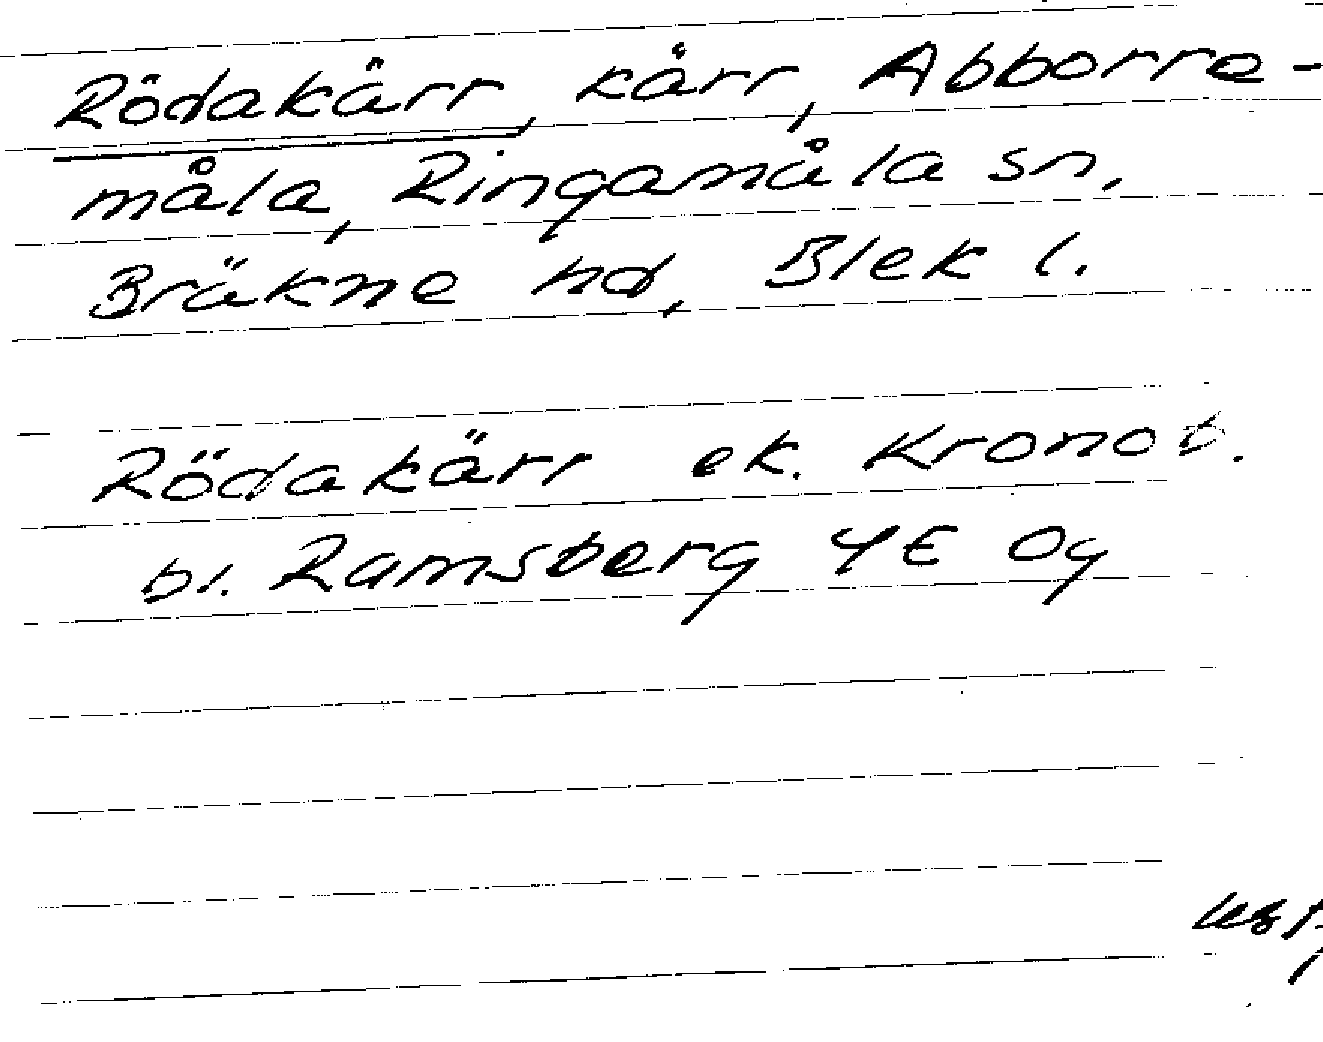 Rödakärr, kärr, Abborre-
måla, Ringamåla sn,
Bräkne hd, Blek l.
Rödakärr ek. Kronob.
bl. Ramsberg 4E Og